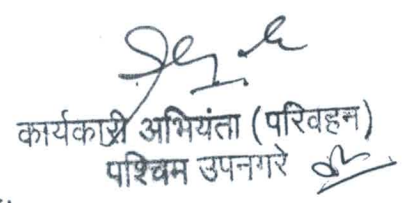 कार्यकारी अभियंता (परिवहन)
पश्चिम उपनगरे